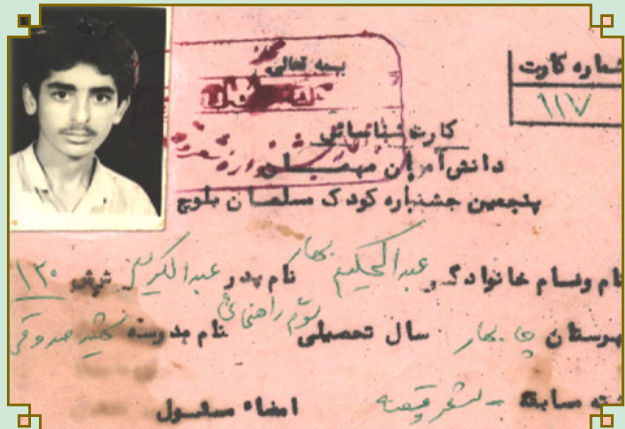 بسمه تعالی
شماره کارت
۱۱۷
کارت شناسائی
دانش‌آموزان میهمان
پنجمین جشنواره کودک مسلمان بلوچ
نام و نام خانوادگی عبدالحکیم بهار نام پدر عبدالکریم ش‌ش ۱۳۰
شهرستان چابهار سال تحصیلی سوم راهنمائی نام مدرسه شهید صدوقی
رشته مسابقه - شعر قصه
امضاء مسئول